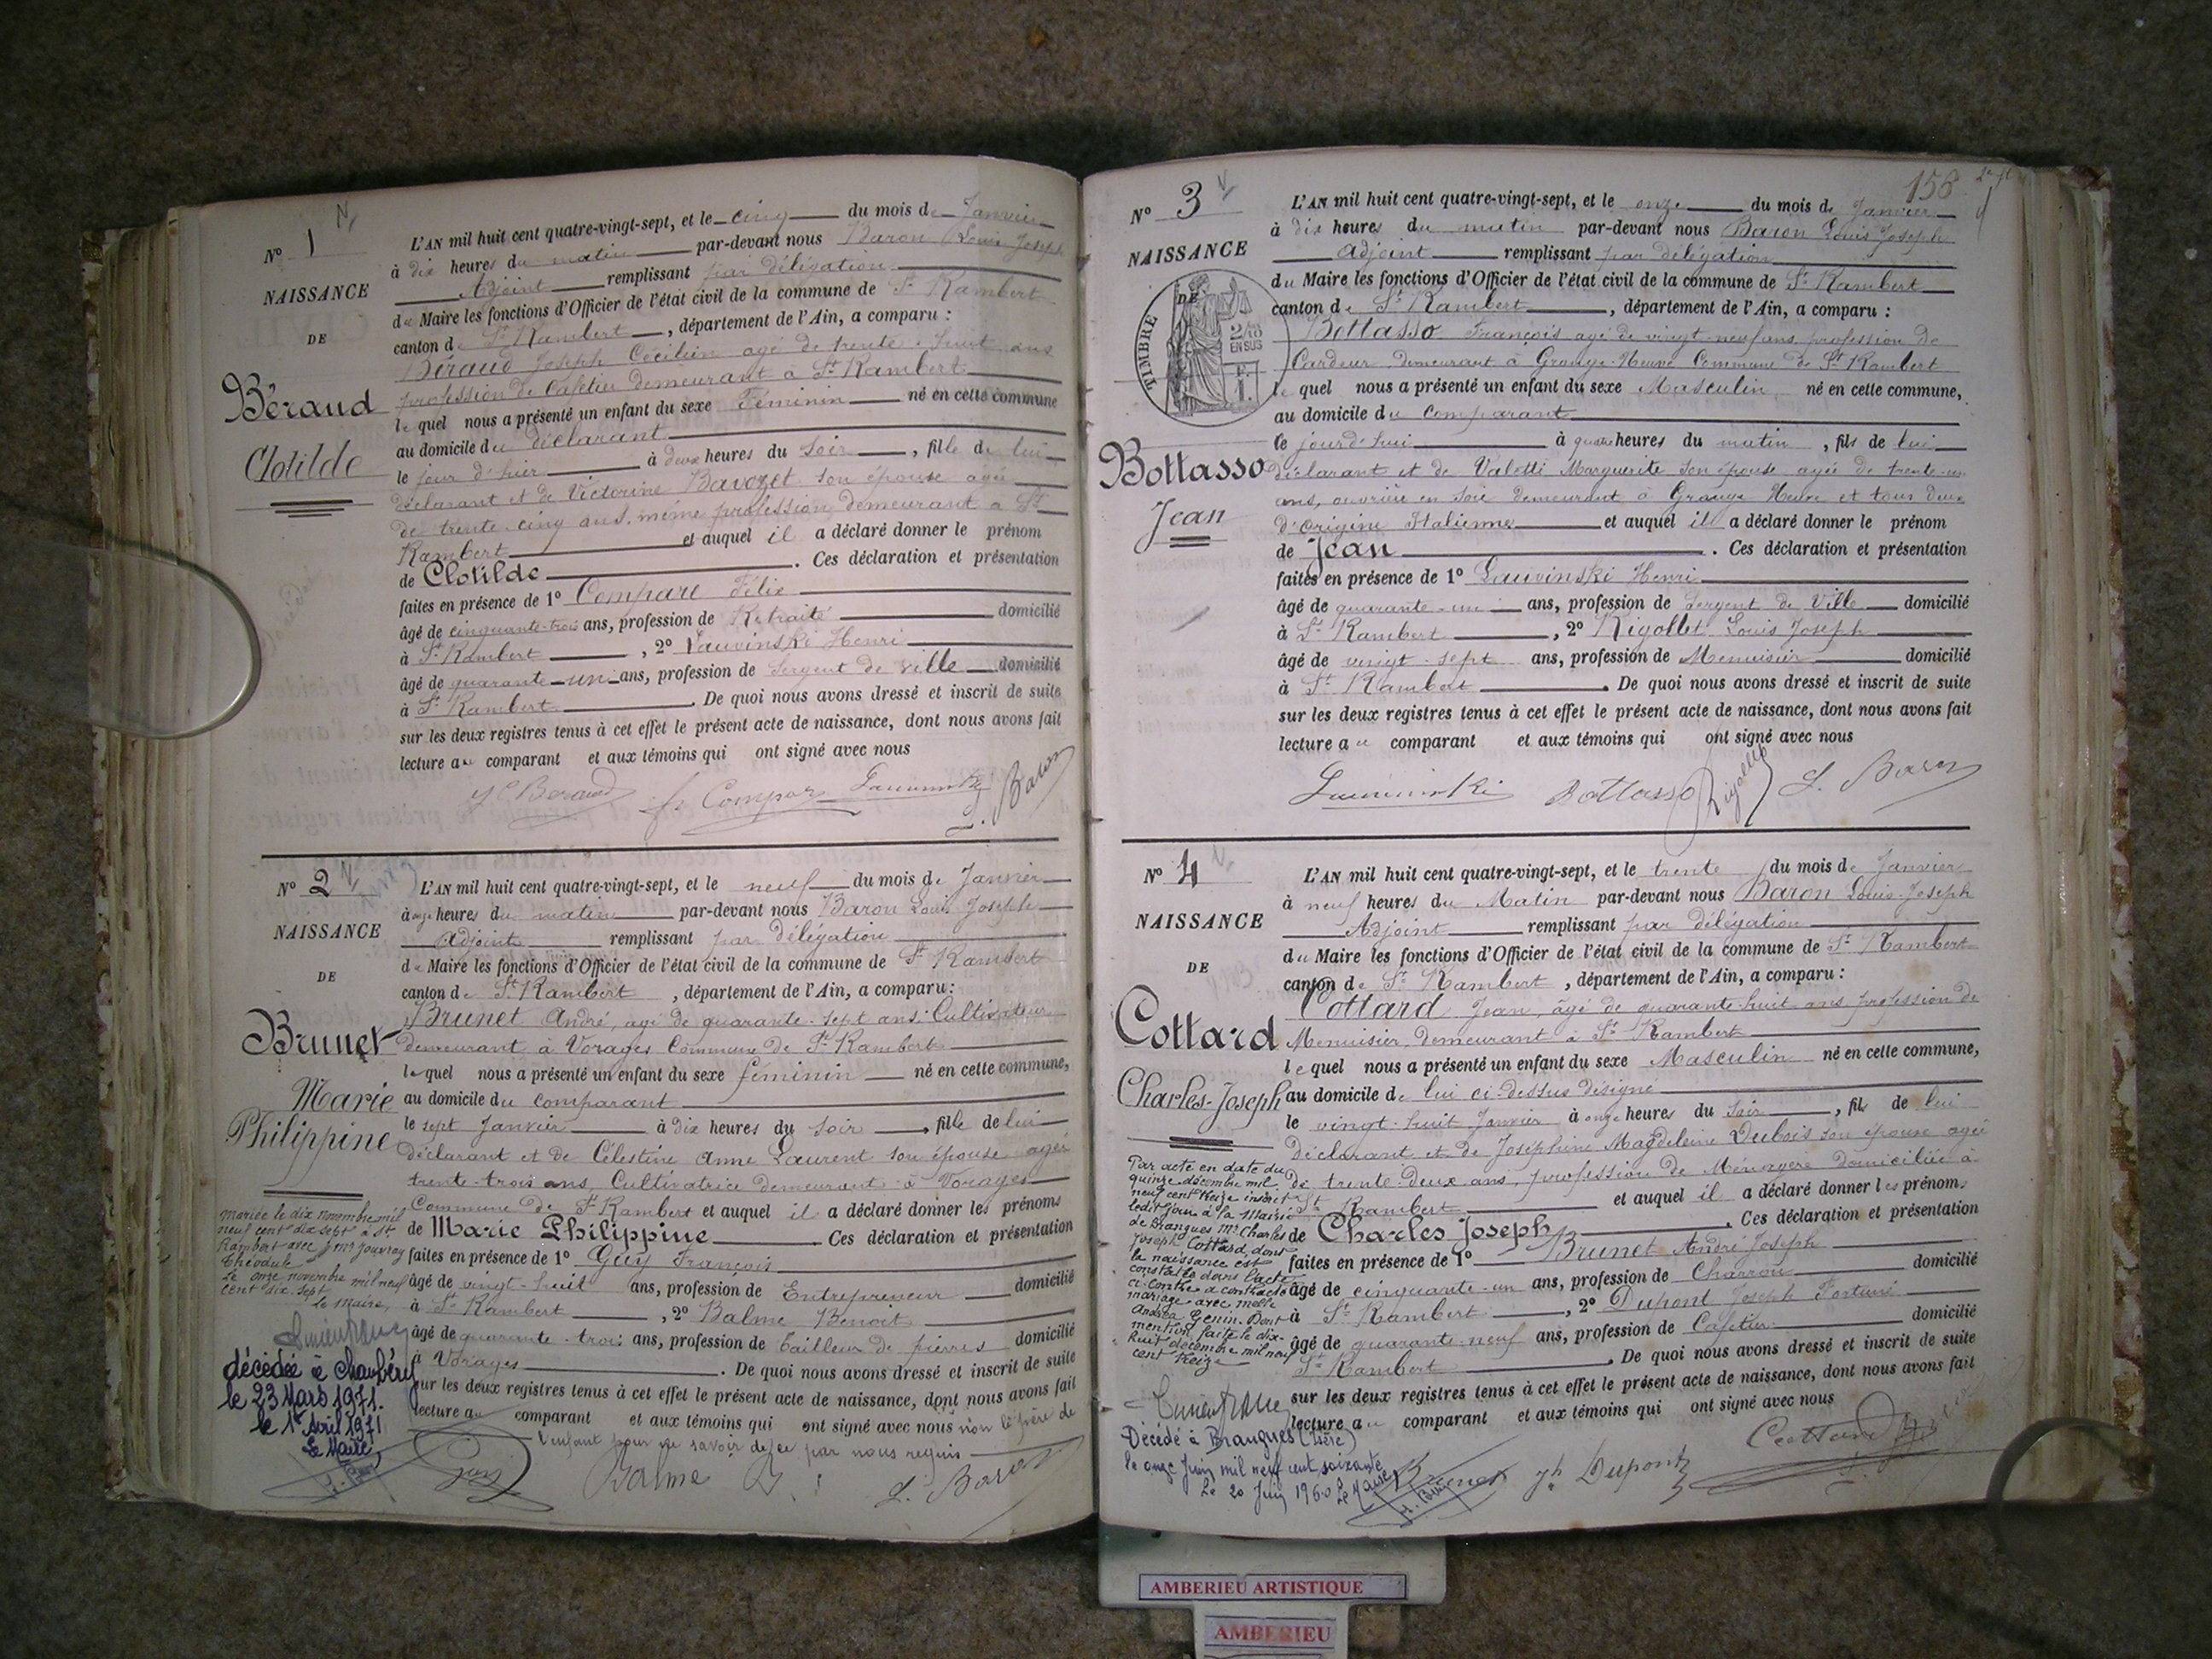 N° 1
NAISSANCE
DE
Béraud
Clotilde
L'AN mil huit cent quatre-vingt-sept, et le cinq du mois de Janvier
à dix heures du matin par-devant nous Baron Louis Joseph
Adjoint remplissant par délégation
du Maire les fonctions d'Officier de l'état civil de la commune de St Rambert
canton de St Rambert, département de l'Ain, a comparu :
Béraud Joseph Cécilien agé de trente-huit ans
profession de Cafetier demeurant à St Rambert
lequel nous a présenté un enfant du sexe Féminin né en cette commune
au domicile du déclarant
le jour d'hier à deux heures du soir, fille de lui
déclarant et de Victorine Bavozet son épouse agée
de trente-cinq ans, même profession, demeurant à St
Rambert et auquel il a déclaré donner le prénom
de Clotilde. Ces déclaration et présentation
faites en présence de 1° Compare Félix
âgé de cinquante-trois ans, profession de Retraité domicilié
à St Rambert, 2° Lauvinski Henri
âgé de quarante-un ans, profession de Sergent de ville domicilié
à St Rambert. De quoi nous avons dressé et inscrit de suite
sur les deux registres tenus à cet effet le présent acte de naissance, dont nous avons fait
lecture au comparant et aux témoins qui ont signé avec nous
L. Baron
N° 2
NAISSANCE
DE
Brunet
Marie
Philippine
L'AN mil huit cent quatre-vingt-sept, et le neuf du mois de Janvier
à onze heures du matin par-devant nous Baron Louis Joseph
Adjoint remplissant par délégation
du Maire les fonctions d'Officier de l'état civil de la commune de St Rambert
canton de St Rambert, département de l'Ain, a comparu :
Brunet André, agé de quarante-sept ans, Cultivateur
demeurant à Vorages Commune de St Rambert
lequel nous a présenté un enfant du sexe féminin né en cette commune,
au domicile du comparant
le sept Janvier à dix heures du soir, fille de lui
déclarant et de Célestine Anne Laurent son épouse agée
trente-trois ans, Cultivatrice demeurant à Vorages
Commune de St Rambert et auquel il a déclaré donner les prénoms
de Marie Philippine. Ces déclaration et présentation
faites en présence de 1° Guy François
âgé de vingt-huit ans, profession de Entrepreneur domicilié
à St Rambert, 2° Balme Benoit
âgé de quarante-trois ans, profession de Tailleur de pierres domicilié
à Vorages. De quoi nous avons dressé et inscrit de suite
sur les deux registres tenus à cet effet le présent acte de naissance, dont nous avons fait
lecture au comparant et aux témoins qui ont signé avec nous non le père de
l'enfant pour ne savoir de ce par nous requis
Guy Balme L. Baron
Mariée le dix novembre mil
neuf cent dix sept à St
Rambert avec Mr Jouvray
Théodule
Le onze novembre mil neuf
cent dix-sept
Le Maire,
décédée à Chambéry
le 23 Mars 1971.
le 1er Avril 1971
Le Maire,
158
N° 3
NAISSANCE
DE
TIMBRE
2/10
EN SUS
Bottasso
Jean
L'AN mil huit cent quatre-vingt-sept, et le onze du mois de Janvier
à dix heures du matin par-devant nous Baron Louis Joseph
Adjoint remplissant par délégation
du Maire les fonctions d'Officier de l'état civil de la commune de St Rambert
canton de St Rambert, département de l'Ain, a comparu :
Bottasso François agé de vingt-neuf ans, profession de
Cardeur, demeurant à Grange-Neuve Commune de St Rambert
lequel nous a présenté un enfant du sexe Masculin né en cette commune,
au domicile du comparant
le jourd'hui à quatre heures du matin, fils de lui
déclarant et de Valetti Marguerite son épouse agée de trente-un
ans, ouvrière en soie demeurant à Grange Neuve et tous deux
d'origine Italienne et auquel il a déclaré donner le prénom
de Jean. Ces déclaration et présentation
faites en présence de 1° Lauvinski Henri
âgé de quarante-un ans, profession de Sergent de Ville domicilié
à St Rambert, 2° Rigollet Louis Joseph
âgé de vingt-sept ans, profession de Menuisier domicilié
à St Rambert. De quoi nous avons dressé et inscrit de suite
sur les deux registres tenus à cet effet le présent acte de naissance, dont nous avons fait
lecture au comparant et aux témoins qui ont signé avec nous
Bottasso Rigollet L. Baron
N° 4
NAISSANCE
DE
Cottard
Charles-Joseph
L'AN mil huit cent quatre-vingt-sept, et le trente du mois de Janvier
à neuf heures du Matin par-devant nous Baron Louis-Joseph
Adjoint remplissant par délégation
du Maire les fonctions d'Officier de l'état civil de la commune de St Rambert
canton de St Rambert, département de l'Ain, a comparu :
Cottard Jean, âgé de quarante-huit ans profession de
Menuisier demeurant à St Rambert
lequel nous a présenté un enfant du sexe Masculin né en cette commune,
au domicile de lui ci-dessus désigné
le vingt-huit Janvier à onze heures du soir, fils de lui
Déclarant et de Joséphine Magdeleine Dubois son épouse agée
de trente-deux ans, profession de Ménagère domiciliée à
St Rambert et auquel il a déclaré donner les prénoms
de Charles Joseph. Ces déclaration et présentation
faites en présence de 1° Brunet André Joseph
âgé de cinquante-un ans, profession de Charron domicilié
à St Rambert, 2° Dupont Joseph Fortuné
âgé de quarante-neuf ans, profession de Cafetier domicilié
St Rambert. De quoi nous avons dressé et inscrit de suite
sur les deux registres tenus à cet effet le présent acte de naissance, dont nous avons fait
lecture au comparant et aux témoins qui ont signé avec nous
Brunet Jh Dupont Cottard
Par acte en date du
quinze décembre mil
neuf cent treize inscrit
ledit jour à la Mairie
de Brangues Mr Charles
Joseph Cottard, dont
la naissance est
constatée dans l'acte
ci-contre a contracté
mariage avec melle
Andréa Genin. Dont
mention faite le dix-
huit décembre mil neuf
cent treize
Décédé à Brangues (Isère)
le onze Juin mil neuf cent soixante
Le 20 Juin 1960 Le Maire
AMBERIEU ARTISTIQUE
AMBERIEU